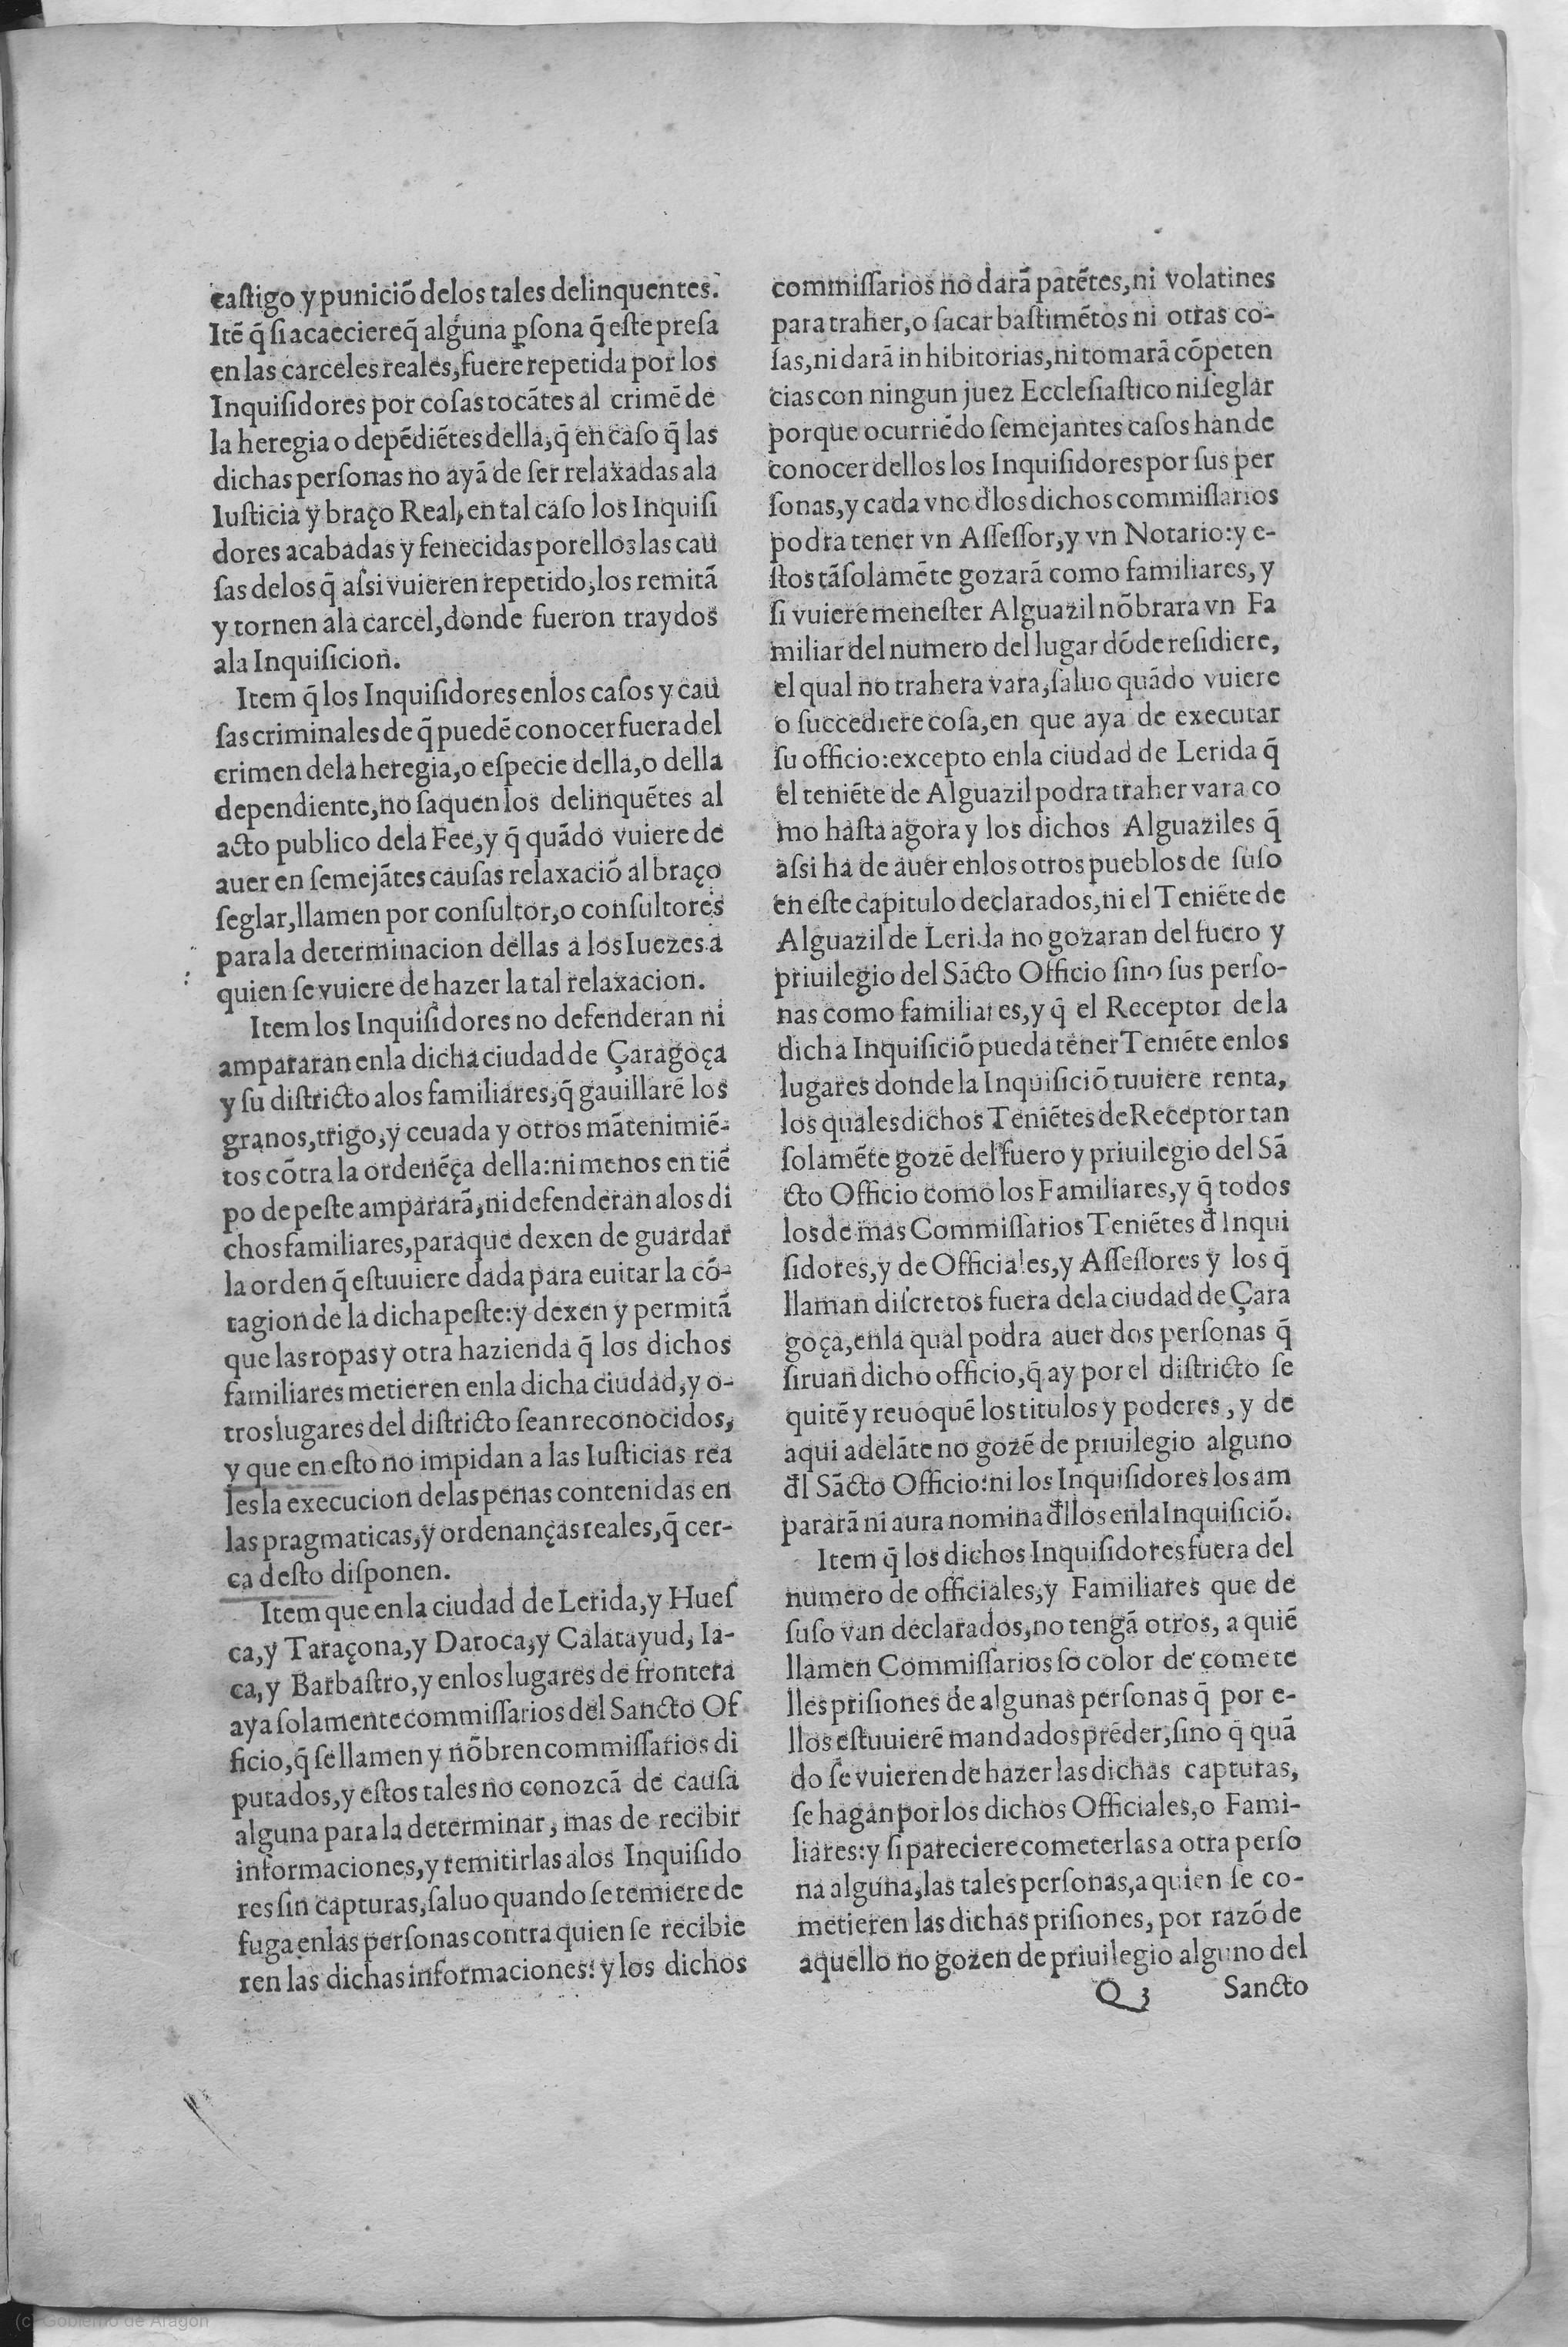 castigo y puniciõ delos tales delinquentes.
Itẽ q̃ si acaeciereq̃ alguna ꝑsona q̃ este presa
en las carceles reales, fuere repetida por los
Inquisidores por cosas tocãtes al crimẽ de
la heregia o depẽdiẽtes della, q̃ en caso q̃ las
dichas personas no ayã de ser relaxadas ala
Iusticia y braço Real, en tal caso los Inquisi
dores acabadas y fenecidas porellos las cau
sas delos q̃ assi vuieren repetido, los remitã
y tornen ala carcel, donde fueron traydos
ala Inquisicion.
Item q̃ los Inquisidores enlos casos y cau
sas criminales de q̃ puedẽ conocer fuera del
crimen dela heregia, o especie della, o della
dependiente, no saquen los delinquẽtes al
acto publico dela Fee, y q̃ quãdo vuiere de
auer en semejãtes causas relaxaciõ al braço
seglar, llamen por consultor, o consultores
para la determinacion dellas a los Iuezes a
quien se vuiere de hazer la tal relaxacion.
Item los Inquisidores no defenderan ni
ampararan enla dicha ciudad de Çaragoça
y su districto alos familiares, q̃ gauillarẽ los
granos, trigo, y ceuada y otros mãtenimiẽ-
tos cõtra la ordenẽça della: ni menos en tiẽ
po de peste ampararã, ni defenderan alos di
chos familiares, paraque dexen de guardar
la orden q̃ estuuiere dada para euitar la cõ-
tagion de la dicha peste: y dexen y permitã
que las ropas y otra hazienda q̃ los dichos
familiares metieren enla dicha ciudad, y o-
tros lugares del districto sean reconocidos,
y que en esto no impidan a las Iusticias rea
les la execucion delas penas contenidas en
las pragmaticas, y ordenanças reales, q̃ cer-
ca desto disponen.
Item que en la ciudad de Lerida, y Hues
ca, y Taraçona, y Daroca, y Calatayud, Ia-
ca, y Barbastro, y enlos lugares de frontera
aya solamente commissarios del Sancto Of
ficio, q̃ se llamen y nõbren commissarios di
putados, y estos tales no conozcã de causa
alguna para la determinar, mas de recibir
informaciones, y remitirlas alos Inquisido
res sin capturas, saluo quando se temiere de
fuga enlas personas contra quien se recibie
ren las dichas informaciones: y los dichos
commissarios no darã patẽtes, ni volatines
para traher, o sacar bastimẽtos ni otras co-
sas, ni darã inhibitorias, ni tomarã cõpeten
cias con ningun juez Ecclesiastico ni seglar
porque ocurriẽdo semejantes casos han de
conocer dellos los Inquisidores por sus per
sonas, y cada vno đlos dichos commissarios
podra tener vn Assessor, y vn Notario: y e-
stos tãsolamẽte gozarã como familiares, y
si vuiere menester Alguazil nõbrara vn Fa
miliar del numero del lugar dõde residiere,
el qual no trahera vara, saluo quãdo vuiere
o succediere cosa, en que aya de executar
su officio: excepto enla ciudad de Lerida q̃
el teniẽte de Alguazil podra traher vara co
mo hasta agora y los dichos Alguaziles q̃
assi ha de auer enlos otros pueblos de suso
en este capitulo declarados, ni el Teniẽte de
Alguazil de Lerida no gozaran del fuero y
priuilegio del Sãcto Officio sino sus perso-
nas como familiares, y q̃ el Receptor de la
dicha Inquisiciõ pueda tener Teniẽte enlos
lugares donde la Inquisiciõ tuuiere renta,
los quales dichos Teniẽtes de Receptor tan
solamẽte gozẽ del fuero y priuilegio del Sã
cto Officio como los Familiares, y q̃ todos
los de mas Commissarios Teniẽtes đ Inqui
sidores, y de Officiales, y Assessores y los q̃
llaman discretos fuera dela ciudad de Çara
goça, enla qual podra auer dos personas q̃
siruan dicho officio, q̃ ay por el districto se
quitẽ y reuoquẽ los titulos y poderes, y de
aqui adelãte no gozẽ de priuilegio alguno
đl Sãcto Officio: ni los Inquisidores los am
pararã ni aura nomina đllos enla Inquisiciõ.
Item q̃ los dichos Inquisidores fuera del
numero de officiales, y Familiares que de
suso van declarados, no tengã otros, a quiẽ
llamen Commissarios so color de comete
lles prisiones de algunas personas q̃ por e-
llos estuuierẽ mandados prẽder, sino q̃ quã
do se vuieren de hazer las dichas capturas,
se hagan por los dichos Officiales, o Fami-
liares: y si pareciere cometerlas a otra perso
na alguna, las tales personas, a quien se co-
metieren las dichas prisiones, por razõ de
aquello no gozen de priuilegio alguno del
Q 3 Sancto
(c) Gobierno de Aragón